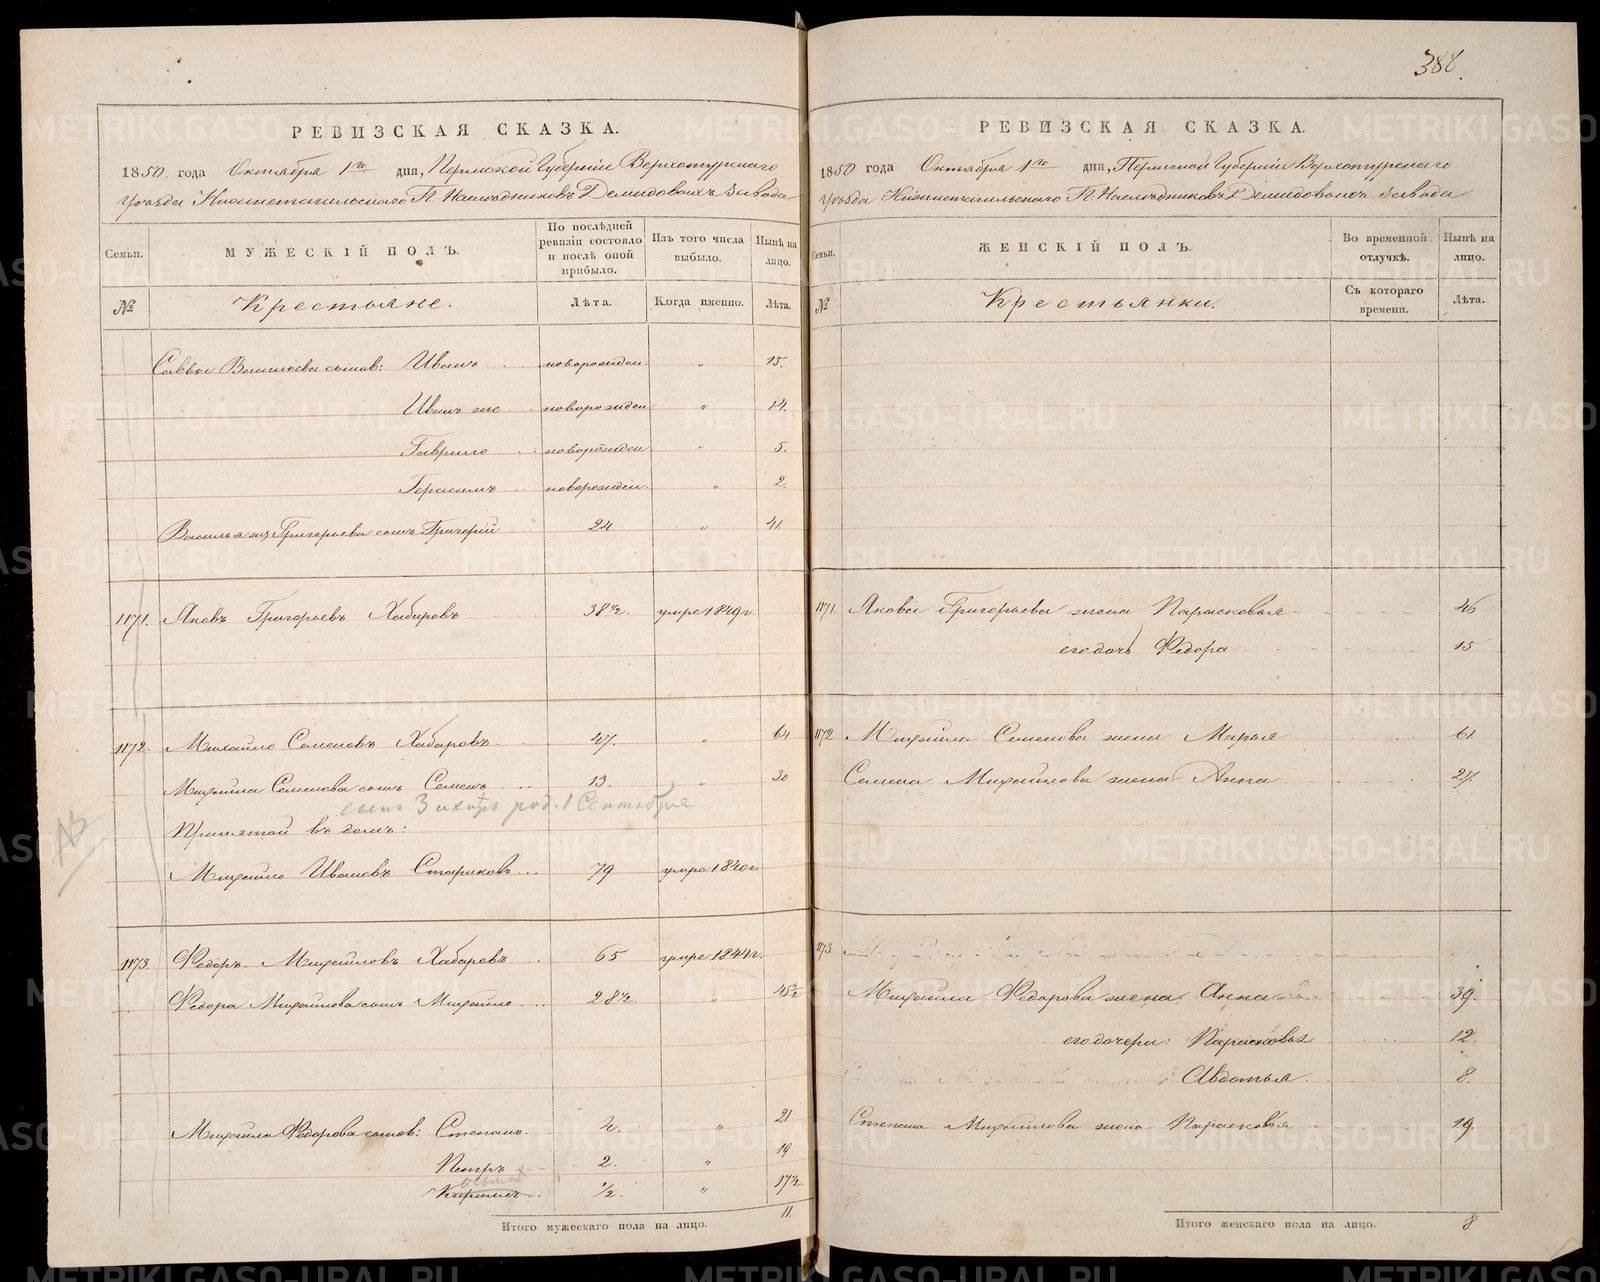 РЕВИЗСКАЯ СКАЗКА.
1850 года Октября 1го дня, Пермской Губерніи Верхотурскаго
Уезда Нижнетагильскаго Г.г. Наследниковъ Демидовыхъ Завода
Семьи.
МУЖЕСКІЙ ПОЛЪ.
По послѣдней ревизіи состояло и послѣ оной прибыло.
Изъ того числа выбыло.
Нынѣ на лицо.
№
Крестьяне.
Лѣта.
Когда именно.
Лѣта.
Саввы Васильева сынов: Иванъ новорожден " 15.
Иванъ же новорожден " 14.
Гаврило новорожден " 5.
Герасимъ новорожден " 2.
Григорьева сынъ Григорій 24 " 41.
1171. Яковъ Григорьевъ Хабаровъ 38½. умре 1849 г
1172. Михайло Семеновъ Хабаровъ 47. " 64
Михайла Семенова сынъ Семенъ 13. " 30
сынъ Захаръ род. 1 Сентября
Принятой въ домъ:
Михайло Ивановъ Стариковъ 79 умре 1840 г
1173. Федоръ Михайловъ Хабаровъ 65 умре 1844 г.
Федора Михайлова сынъ Михайло 28½. " 45½
Михайла Федорова сынов: Степанъ 4. " 21
Петръ 2. " 19
Кирилъ ½. " 17½
Итого мужескаго пола на лицо. 11
388.
РЕВИЗСКАЯ СКАЗКА.
1850 года Октября 1го дня, Пермской Губерніи Верхотурскаго
Уезда Нижнетагильскаго Г.г. Наследниковъ Демидовыхъ Завода
Семьи.
ЖЕНСКІЙ ПОЛЪ.
Во временной отлучкѣ.
Нынѣ на лицо.
№
Крестьянки.
Съ котораго времени.
Лѣта.
1171. Якова Григорьева жена Парасковья 46
его дочь Федора 15
1172 Михайла Семенова жена Марья 61
Семена Михайлова жена Анна 27.
1173.
Михайла Федорова жена Анна 39.
его дочери: Парасковья 12
Авдотья. 8.
Степана Михайлова жена Парасковья 19.
Итого женскаго пола на лицо. 8
METRIKI.GASO-URAL.RU